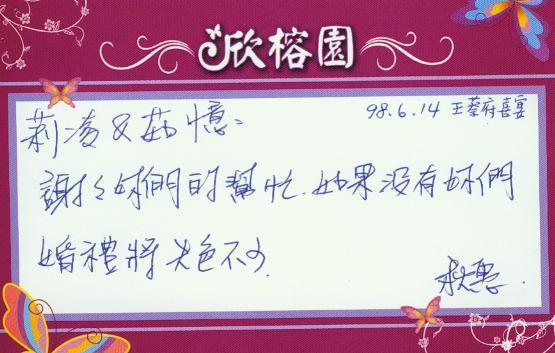 欣榕園
98.6.14 王蔡府喜宴
莉凌&茹憶:
謝謝妳們的幫忙.如果沒有妳們
婚禮將失色不少
秋惠.